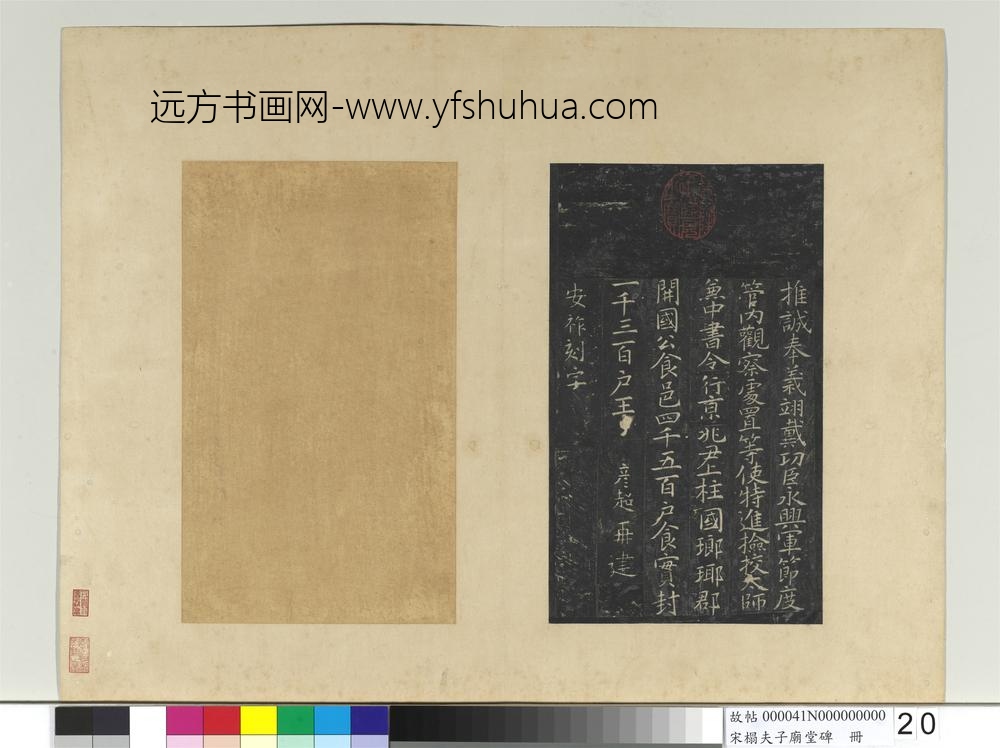 远方书画网-www.yfshuhua.com
推誠奉義翊戴功臣永興軍節度
管内觀察處置等使特進撿挍太師
兼中書令行京兆尹上柱國瑯瑘郡
開國公食邑四千五百户食實封
一千三百户王彦超再建
安祚刻字
故帖 000041N000000000
宋榻夫子廟堂碑 冊
20